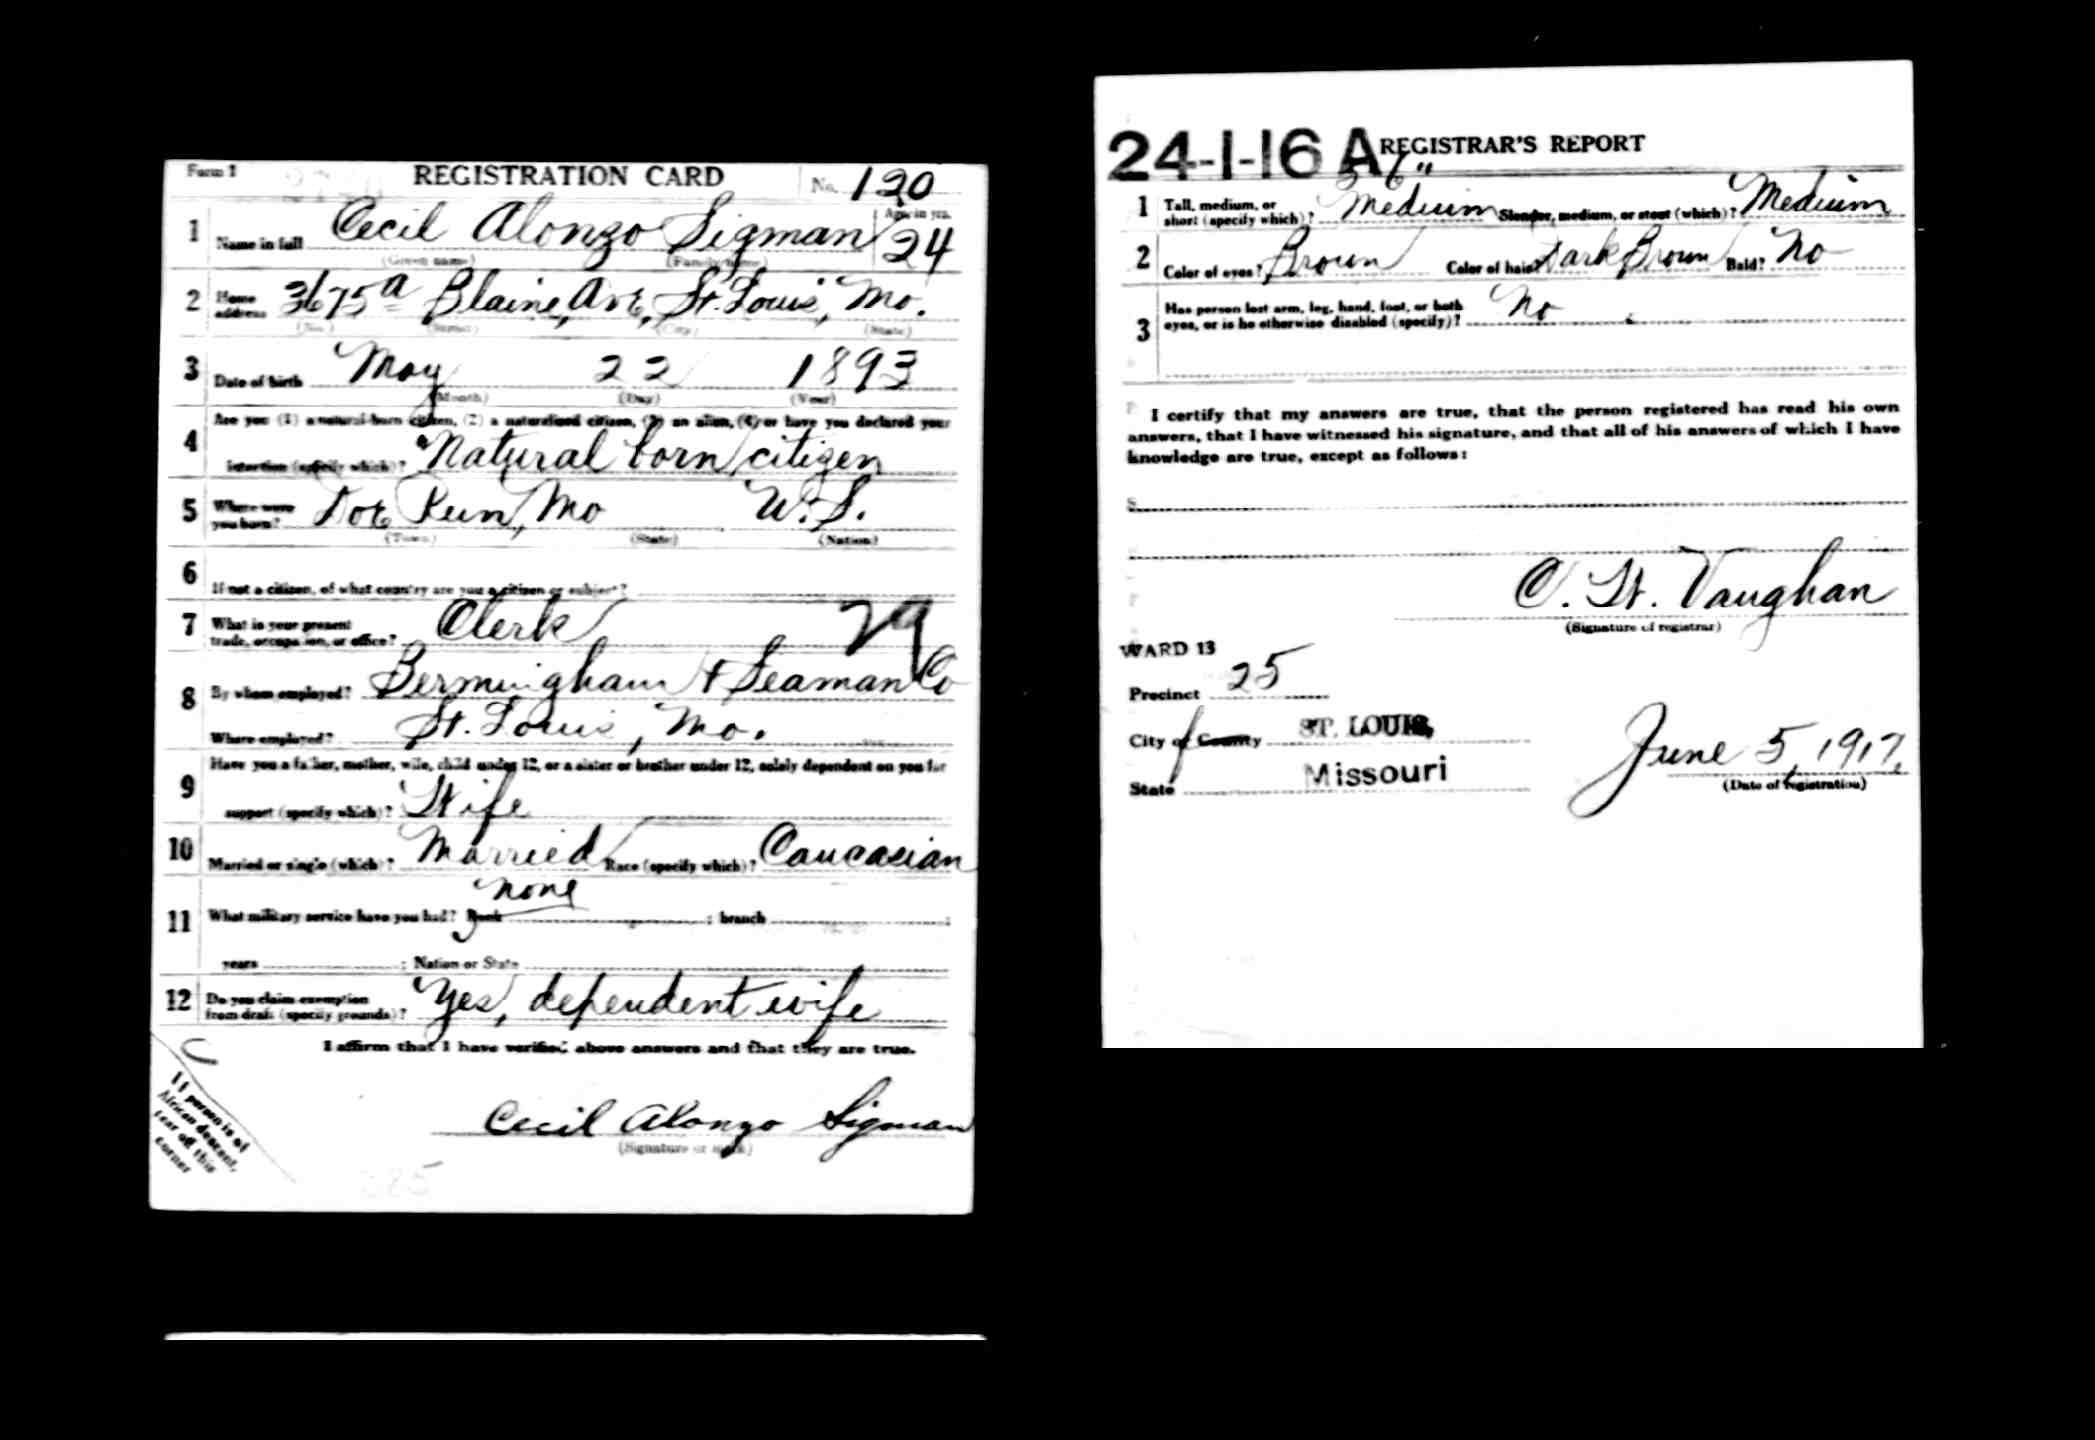 Form 1 REGISTRATION CARD No. 120
1 Name in full Cecil Alonzo Sigman Age, in yrs. 24
(Given name) (Family name)
2 Home address 3675a Blaine Ave, St. Louis, Mo.
(No.) (Street) (City) (State)
3 Date of birth May 22 1893
(Month) (Day) (Year)
4 Are you (1) a natural-born citizen, (2) a naturalized citizen, (3) an alien, (4) or have you declared your
intention (specify which)? Natural born citizen
5 Where were you born? Doe Run, Mo U.S.
(Town) (State) (Nation)
6 If not a citizen, of what country are you a citizen or subject?
7 What is your present trade, occupation, or office? Clerk 29
8 By whom employed? Bermingham & Seaman Co
Where employed? St. Louis, Mo.
9 Have you a father, mother, wife, child under 12, or a sister or brother under 12, solely dependent on you for
support (specify which)? Wife
10 Married or single (which)? Married Race (specify which)? Caucasian
none
11 What military service have you had? Rank ; branch ;
years ; Nation or State
12 Do you claim exemption from draft (specify grounds)? Yes, dependent wife
I affirm that I have verified above answers and that they are true.
Cecil Alonzo Sigman
(Signature or mark)
If person is of
African descent,
tear off this
corner
24-1-16 A REGISTRAR'S REPORT
1 Tall, medium, or short (specify which)? Medium Slender, medium, or stout (which)? Medium
2 Color of eyes? Brown Color of hair? Dark Brown Bald? No
3 Has person lost arm, leg, hand, foot, or both eyes, or is he otherwise disabled (specify)? No
I certify that my answers are true, that the person registered has read his own
answers, that I have witnessed his signature, and that all of his answers of which I have
knowledge are true, except as follows:
C. W. Vaughan
(Signature of registrar)
WARD 13
Precinct 25
City of County ST. LOUIS,
State Missouri
June 5, 1917.
(Date of registration)